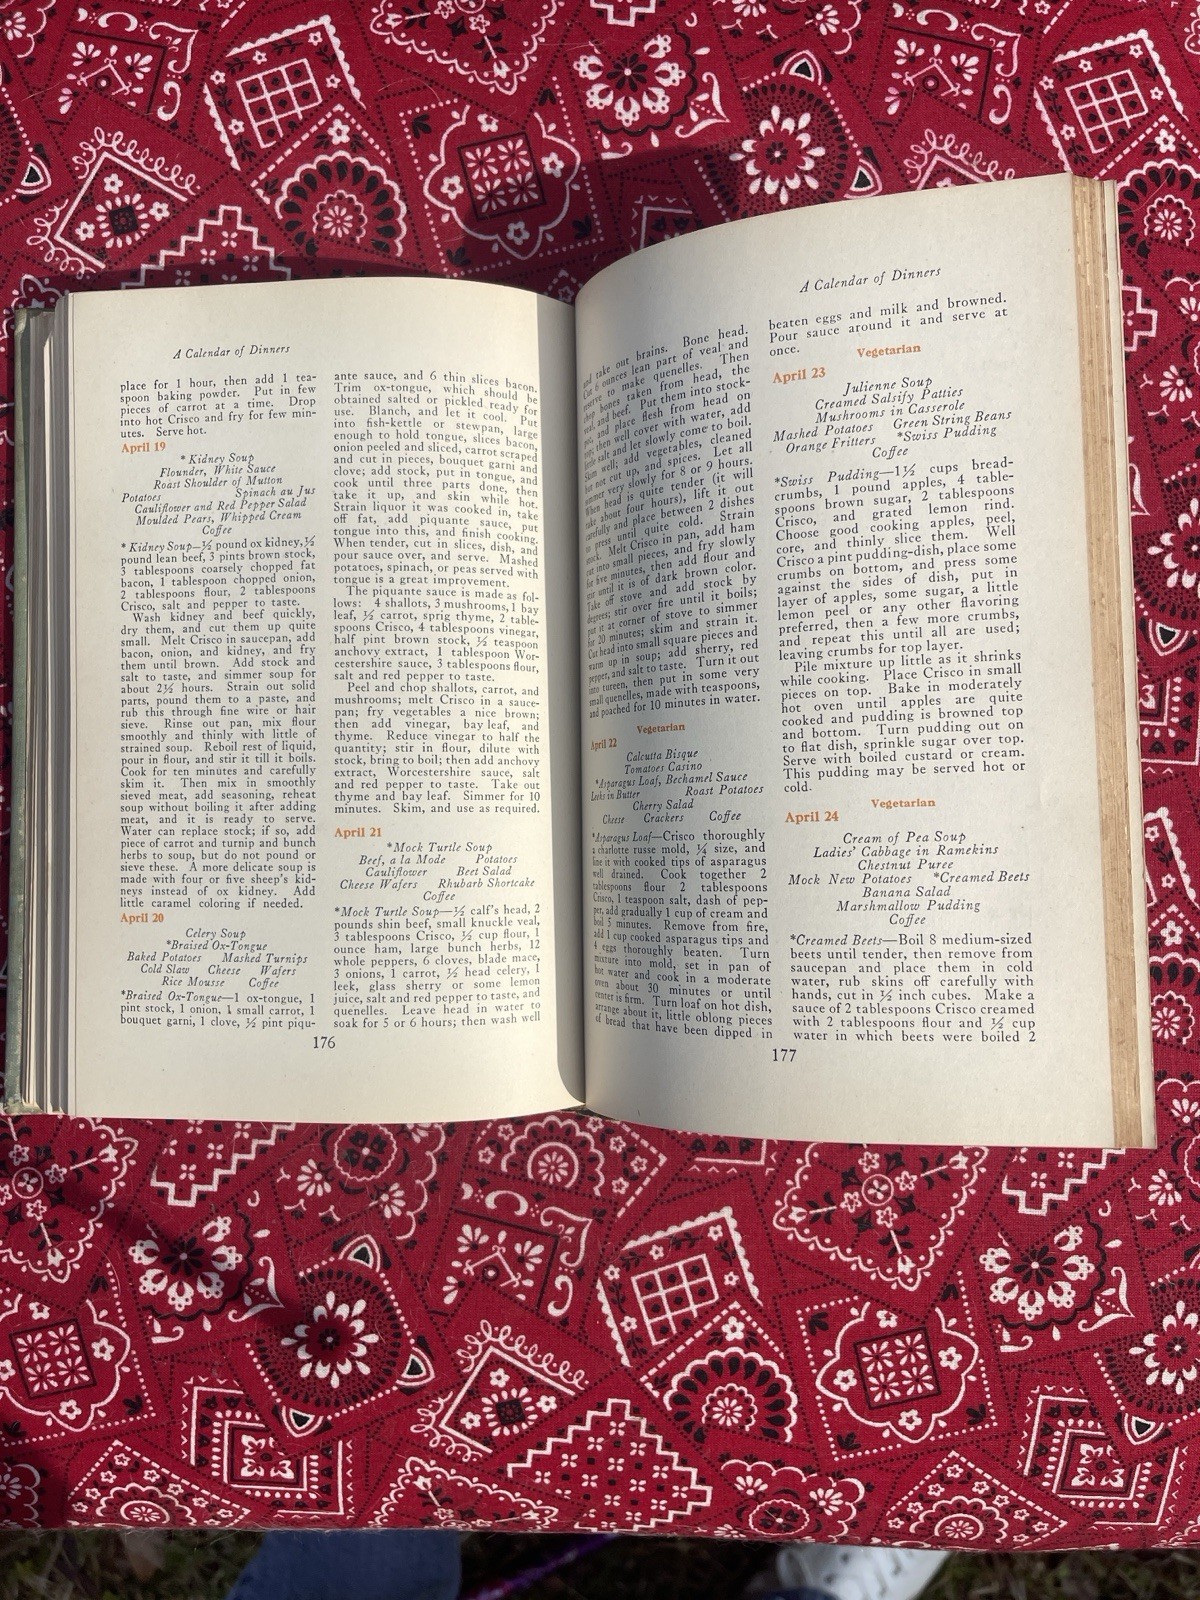 A Calendar of Dinners
place for 1 hour, then add 1 tea-
spoon baking powder. Put in few
pieces of carrot at a time. Drop
into hot Crisco and fry for few min-
utes. Serve hot.
April 19
*Kidney Soup
Flounder, White Sauce
Roast Shoulder of Mutton
Potatoes Spinach au Jus
Cauliflower and Red Pepper Salad
Moulded Pears, Whipped Cream
Coffee
*Kidney Soup—½ pound ox kidney, ½
pound lean beef, 3 pints brown stock,
3 tablespoons coarsely chopped fat
bacon, 1 tablespoon chopped onion,
2 tablespoons flour, 2 tablespoons
Crisco, salt and pepper to taste.
Wash kidney and beef quickly,
dry them, and cut them up quite
small. Melt Crisco in saucepan, add
bacon, onion, and kidney, and fry
them until brown. Add stock and
salt to taste, and simmer soup for
about 2½ hours. Strain out solid
parts, pound them to a paste, and
rub this through fine wire or hair
sieve. Rinse out pan, mix flour
smoothly and thinly with little of
strained soup. Reboil rest of liquid,
pour in flour, and stir it till it boils.
Cook for ten minutes and carefully
skim it. Then mix in smoothly
sieved meat, add seasoning, reheat
soup without boiling it after adding
meat, and it is ready to serve.
Water can replace stock; if so, add
piece of carrot and turnip and bunch
herbs to soup, but do not pound or
sieve these. A more delicate soup is
made with four or five sheep's kid-
neys instead of ox kidney. Add
little caramel coloring if needed.
April 20
Celery Soup
*Braised Ox-Tongue
Baked Potatoes Mashed Turnips
Cold Slaw Cheese Wafers
Rice Mousse Coffee
*Braised Ox-Tongue—1 ox-tongue, 1
pint stock, 1 onion, 1 small carrot, 1
bouquet garni, 1 clove, ½ pint piqu-
ante sauce, and 6 thin slices bacon.
Trim ox-tongue, which should be
obtained salted or pickled ready for
use. Blanch, and let it cool. Put
into fish-kettle or stewpan, large
enough to hold tongue, slices bacon,
onion peeled and sliced, carrot scraped
and cut in pieces, bouquet garni and
clove; add stock, put in tongue, and
cook until three parts done, then
take it up, and skin while hot.
Strain liquor it was cooked in, take
off fat, add piquante sauce, put
tongue into this, and finish cooking.
When tender, cut in slices, dish, and
pour sauce over, and serve. Mashed
potatoes, spinach, or peas served with
tongue is a great improvement.
The piquante sauce is made as fol-
lows: 4 shallots, 3 mushrooms, 1 bay
leaf, ½ carrot, sprig thyme, 2 table-
spoons Crisco, 4 tablespoons vinegar,
half pint brown stock, ½ teaspoon
anchovy extract, 1 tablespoon Wor-
cestershire sauce, 3 tablespoons flour,
salt and red pepper to taste.
Peel and chop shallots, carrot, and
mushrooms; melt Crisco in a sauce-
pan; fry vegetables a nice brown;
then add vinegar, bay leaf, and
thyme. Reduce vinegar to half the
quantity; stir in flour, dilute with
stock, bring to boil; then add anchovy
extract, Worcestershire sauce, salt
and red pepper to taste. Take out
thyme and bay leaf. Simmer for 10
minutes. Skim, and use as required.
April 21
*Mock Turtle Soup
Beef, a la Mode Potatoes
Cauliflower Beet Salad
Cheese Wafers Rhubarb Shortcake
Coffee
*Mock Turtle Soup—½ calf's head, 2
pounds shin beef, small knuckle veal,
3 tablespoons Crisco, ½ cup flour, 1
ounce ham, large bunch herbs, 12
whole peppers, 6 cloves, blade mace,
3 onions, 1 carrot, ½ head celery, 1
leek, glass sherry or some lemon
juice, salt and red pepper to taste, and
quenelles. Leave head in water to
soak for 5 or 6 hours; then wash well
176
A Calendar of Dinners
and take out brains. Bone head.
Cut 6 ounces lean part of veal and
reserve to make quenelles. Then
chop bones taken from head, the
veal, and beef. Put them into stock-
pot, and place flesh from head on
top; then well cover with water, add
little salt and let slowly come to boil.
Skim well; add vegetables, cleaned
but not cut up, and spices. Let all
simmer very slowly for 8 or 9 hours.
When head is quite tender (it will
take about four hours), lift it out
carefully and place between 2 dishes
to press until quite cold. Strain
stock. Melt Crisco in pan, add ham
cut into small pieces, and fry slowly
for five minutes, then add flour and
stir until it is of dark brown color.
Take off stove and add stock by
degrees; stir over fire until it boils;
put it at corner of stove to simmer
for 20 minutes; skim and strain it.
Cut head into small square pieces and
warm up in soup; add sherry, red
pepper, and salt to taste. Turn it out
into tureen, then put in some very
small quenelles, made with teaspoons,
and poached for 10 minutes in water.
Vegetarian
April 22
Calcutta Bisque
Tomatoes Casino
*Asparagus Loaf, Bechamel Sauce
Leeks in Butter Roast Potatoes
Cherry Salad
Cheese Crackers Coffee
*Asparagus Loaf—Crisco thoroughly
a charlotte russe mold, ¼ size, and
line it with cooked tips of asparagus
well drained. Cook together 2
tablespoons flour 2 tablespoons
Crisco, 1 teaspoon salt, dash of pep-
per, add gradually 1 cup of cream and
boil 5 minutes. Remove from fire,
add 1 cup cooked asparagus tips and
4 eggs thoroughly beaten. Turn
mixture into mold, set in pan of
hot water and cook in a moderate
oven about 30 minutes or until
center is firm. Turn loaf on hot dish,
arrange about it, little oblong pieces
of bread that have been dipped in
beaten eggs and milk and browned.
Pour sauce around it and serve at
once.
Vegetarian
April 23
Julienne Soup
Creamed Salsify Patties
Mushrooms in Casserole
Mashed Potatoes Green String Beans
Orange Fritters *Swiss Pudding
Coffee
*Swiss Pudding—1½ cups bread-
crumbs, 1 pound apples, 4 table-
spoons brown sugar, 2 tablespoons
Crisco, and grated lemon rind.
Choose good cooking apples, peel,
core, and thinly slice them. Well
Crisco a pint pudding-dish, place some
crumbs on bottom, and press some
against the sides of dish, put in
layer of apples, some sugar, a little
lemon peel or any other flavoring
preferred, then a few more crumbs,
and repeat this until all are used;
leaving crumbs for top layer.
Pile mixture up little as it shrinks
while cooking. Place Crisco in small
pieces on top. Bake in moderately
hot oven until apples are quite
cooked and pudding is browned top
and bottom. Turn pudding out on
to flat dish, sprinkle sugar over top.
Serve with boiled custard or cream.
This pudding may be served hot or
cold.
Vegetarian
April 24
Cream of Pea Soup
Ladies' Cabbage in Ramekins
Chestnut Puree
Mock New Potatoes *Creamed Beets
Banana Salad
Marshmallow Pudding
Coffee
*Creamed Beets—Boil 8 medium-sized
beets until tender, then remove from
saucepan and place them in cold
water, rub skins off carefully with
hands, cut in ½ inch cubes. Make a
sauce of 2 tablespoons Crisco creamed
with 2 tablespoons flour and ½ cup
water in which beets were boiled 2
177